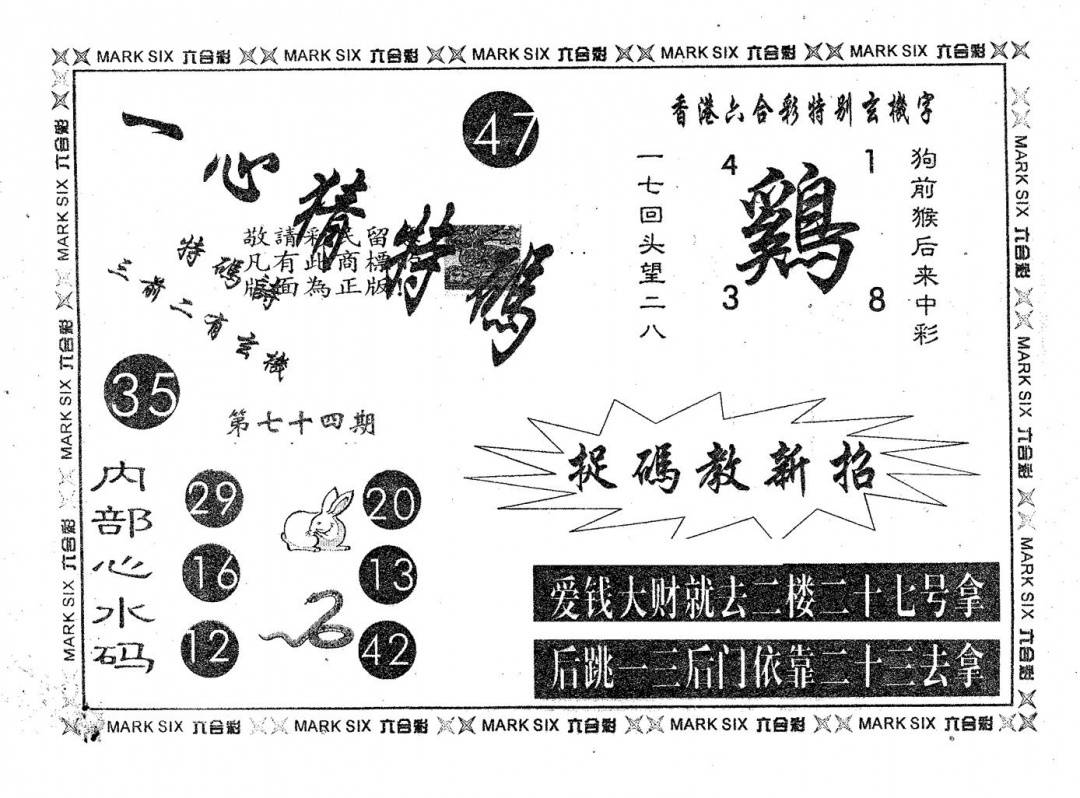 MARK SIX 六合彩 MARK SIX 六合彩 MARK SIX 六合彩 MARK SIX 六合彩 MARK SIX 六合彩
MARK SIX 六合彩 MARK SIX 六合彩 MARK SIX 六合彩
MARK SIX 六合彩 MARK SIX 六合彩 MARK SIX 六合彩
一心猜特碼
47
香港六合彩特别玄機字
狗前猴后来中彩
4 1
鷄
3 8
一七回头望二八
敬請彩民留
凡有此商標
版面為正版!
特碼詩
三前二有玄機
35
第七十四期
捉碼教新招
内部心水码
29 20
16 13
12 42
爱钱大财就去二楼二十七号拿
后跳一三后门依靠二十三去拿
MARK SIX 六合彩 MARK SIX 六合彩 MARK SIX 六合彩 MARK SIX 六合彩 MARK SIX 六合彩